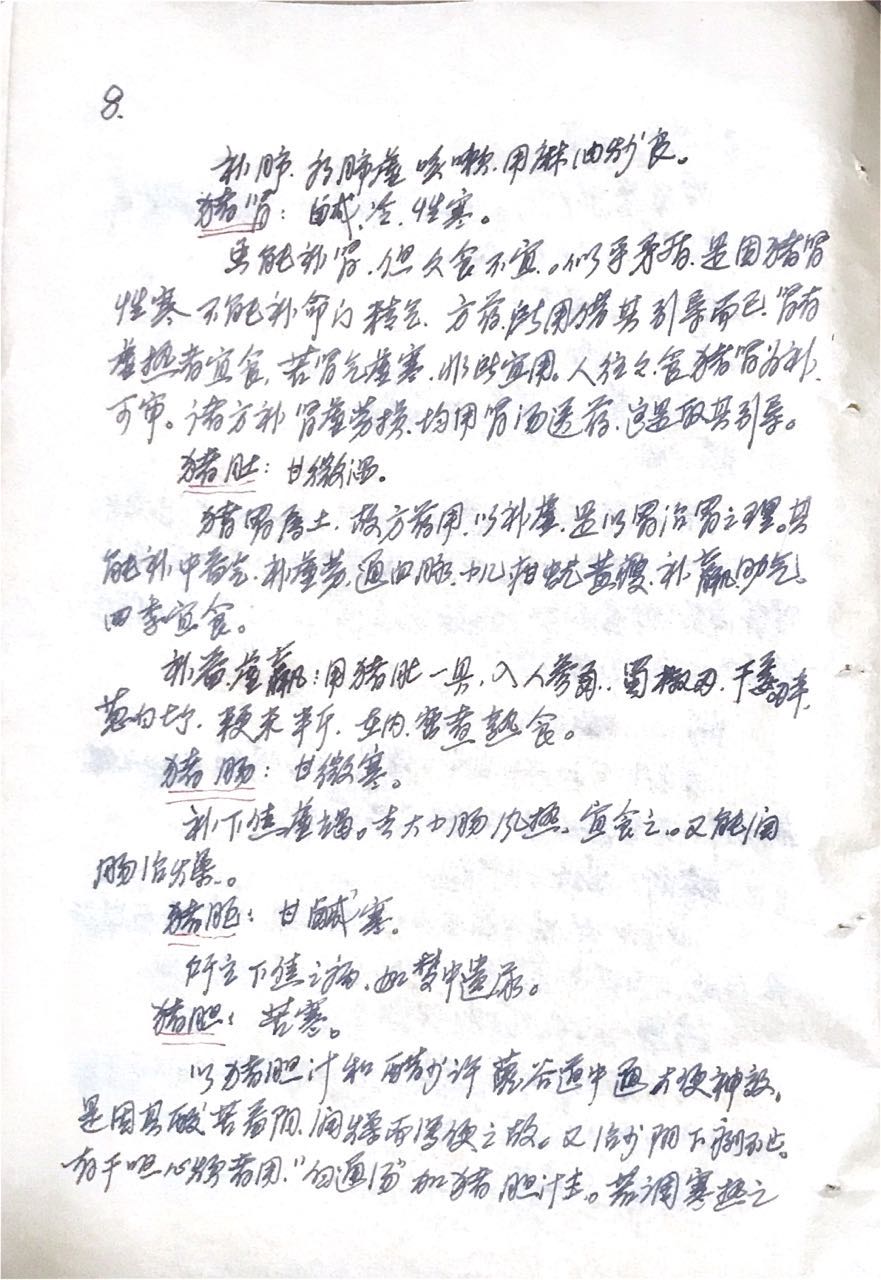 8.
补肺. 补肺虚咳嗽.用麻油炒食。
猪肾：鹹.冷.性寒。
虽能补肾.但久食不宜。似乎矛盾.是因猪肾
性寒不能补命门精气.方药所用借其引导而已.肾有
虚热者宜食,若肾气虚寒.非所宜用。人往々食猪肾为补.
可审。诸方补肾虚劳损.均用肾汤送药.这是取其引导。
猪肚：甘微温。
猪胃属土.故方药用.以补虚.是以胃治胃之理。其
能补中益气.补虚劳.通血脉.小儿疳蚘黄瘦.补羸.助气.
四季宜食。
补益虚羸：用猪肚一具.入人参.蜀椒.干姜.
葱白.粳米半斤.在内.密煮熟食。
猪肠：甘微寒。
补下焦虚竭。去大小肠风热.宜食之。又能润
肠治燥。
猪脬：甘鹹寒。
所主下焦之病.如梦中遗尿。
猪胆：苦寒。
以猪胆汁和醋少许 谷道中通大便神效.
是因其酸苦益阴.润燥而泻便之故。又治少阴下痢不止.
有干呕心烦者用.“白通汤”加猪胆汁主。若调寒热之